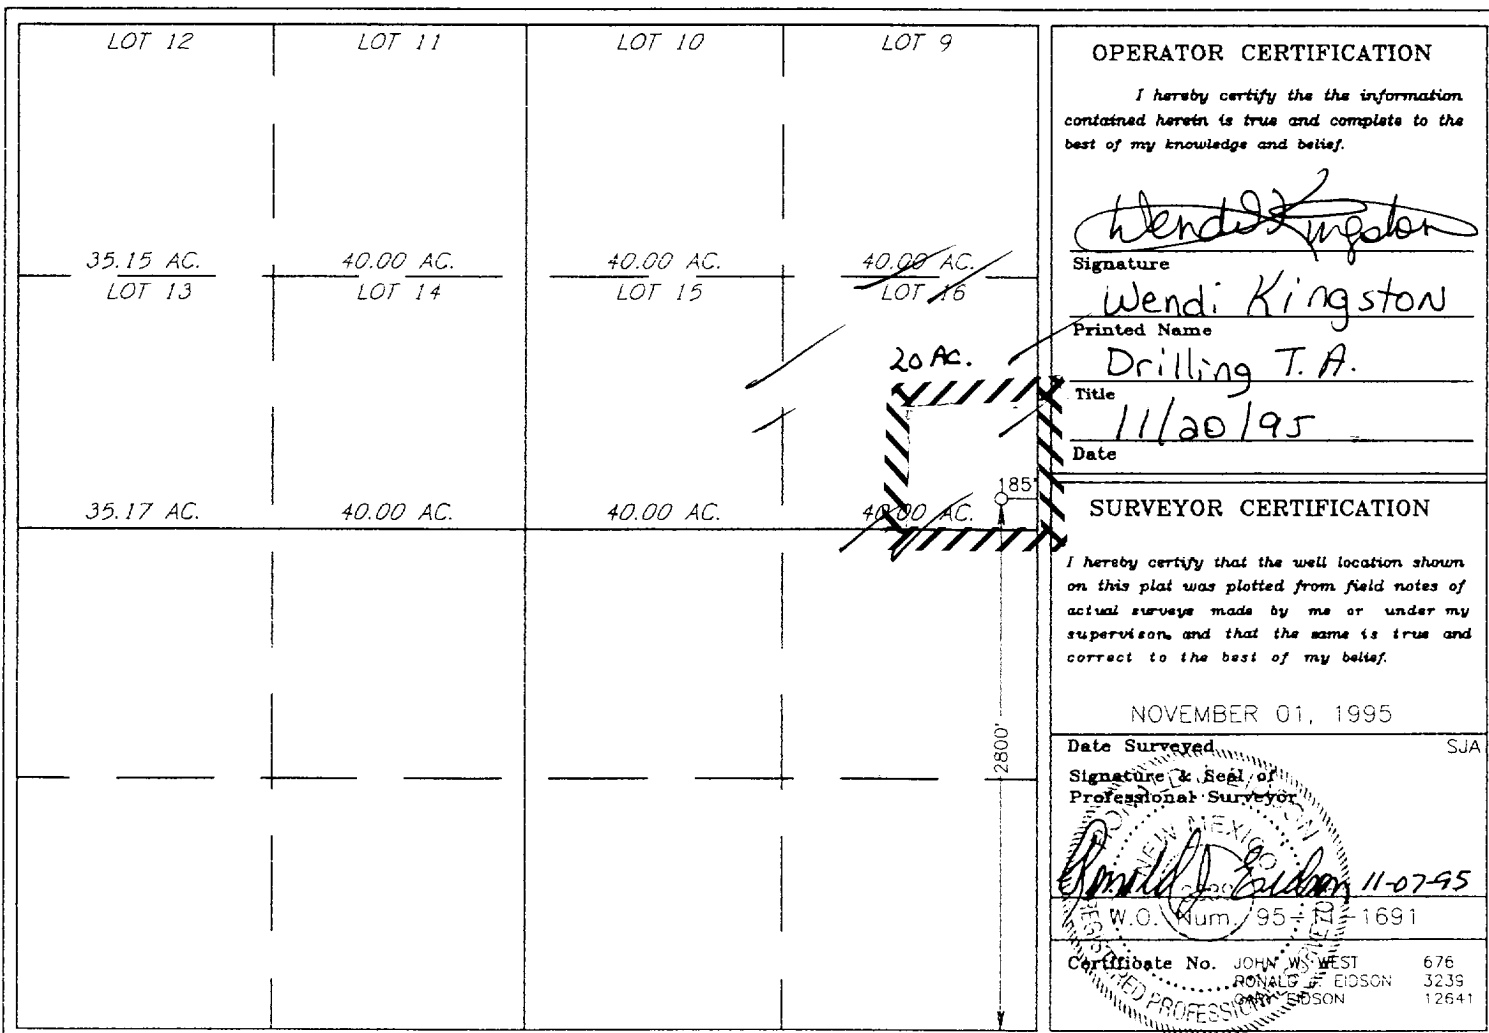 LOT 12 LOT 11 LOT 10 LOT 9
35.15 AC. 40.00 AC. 40.00 AC. 40.00 AC.
LOT 13 LOT 14 LOT 15 LOT 16
20 AC.
35.17 AC. 40.00 AC. 40.00 AC. 40.00 AC.
185'
2800'
OPERATOR CERTIFICATION
I hereby certify the the information
contained herein is true and complete to the
best of my knowledge and belief.
Wendi Kingston
Signature
Wendi Kingston
Printed Name
Drilling T.A.
Title
11/20/95
Date
SURVEYOR CERTIFICATION
I hereby certify that the well location shown
on this plat was plotted from field notes of
actual surveys made by me or under my
supervison, and that the same is true and
correct to the best of my belief.
NOVEMBER 01, 1995
Date Surveyed SJA
Signature & Seal of
Professional Surveyor
RONALD J. EIDSON
NEW MEXICO
3239
REGISTERED PROFESSIONAL
Ronald J Eidson 11-07-95
W.O. Num. 95-11-1691
Certificate No. JOHN W. WEST 676
RONALD J. EIDSON 3239
GARY EIDSON 12641